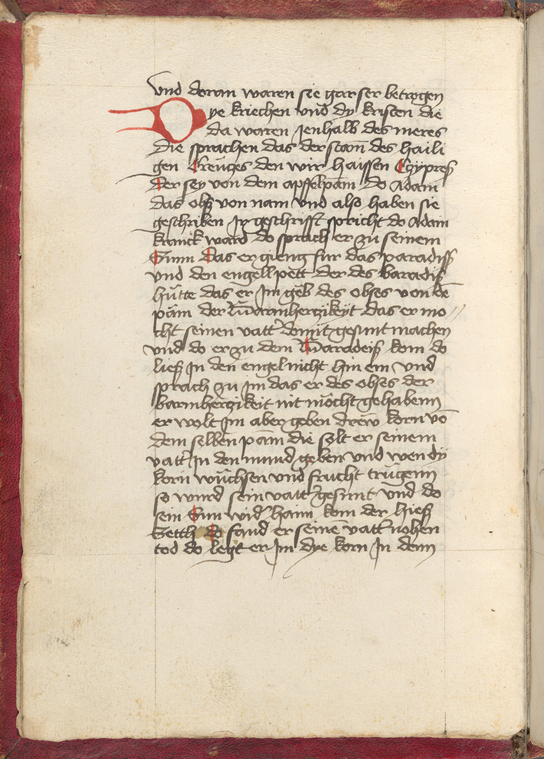 vnd doran waren sie gar ser betrogen
Dye kriechen vnd dy kristen die
da waren Jenhalb des meres
die sprachen das der stam des haili
gen Creuges den wir haissen Cypreß
der sey von dem apfelpam do Adam
das obß von nam vnd also haben sie
geschriben Jr geschrifft spricht do Adam
kranck ward do sprach er zu seinem
Sunn das er gieng fur das paradiß
vnd den engell pett der des baradiß
hutte das er Jm geb des obses von dē
pam der Warmherzikeyt das er mo
cht seinen vatt' domit gesunt machen
vnd do er zu dem Waradeiß kom do
ließ Jn den engel nicht hin ein vnd
sprach zu Jm das er des obses der
barmherzikeit nit möcht gehabenn
er wolt Jm aber geben drew korn vō
dem selben pam die solt er seinem
vatt' Jn den mund geben vnd wen dy
korn wuchsen vnd frucht trugenn
so wurd sein vatt' gesunt vnd do
sein Sun wid' haim kom der hieß
Setth do fand er seinē vatt' nohen
tod do legt er Jm dye korn Jn denn